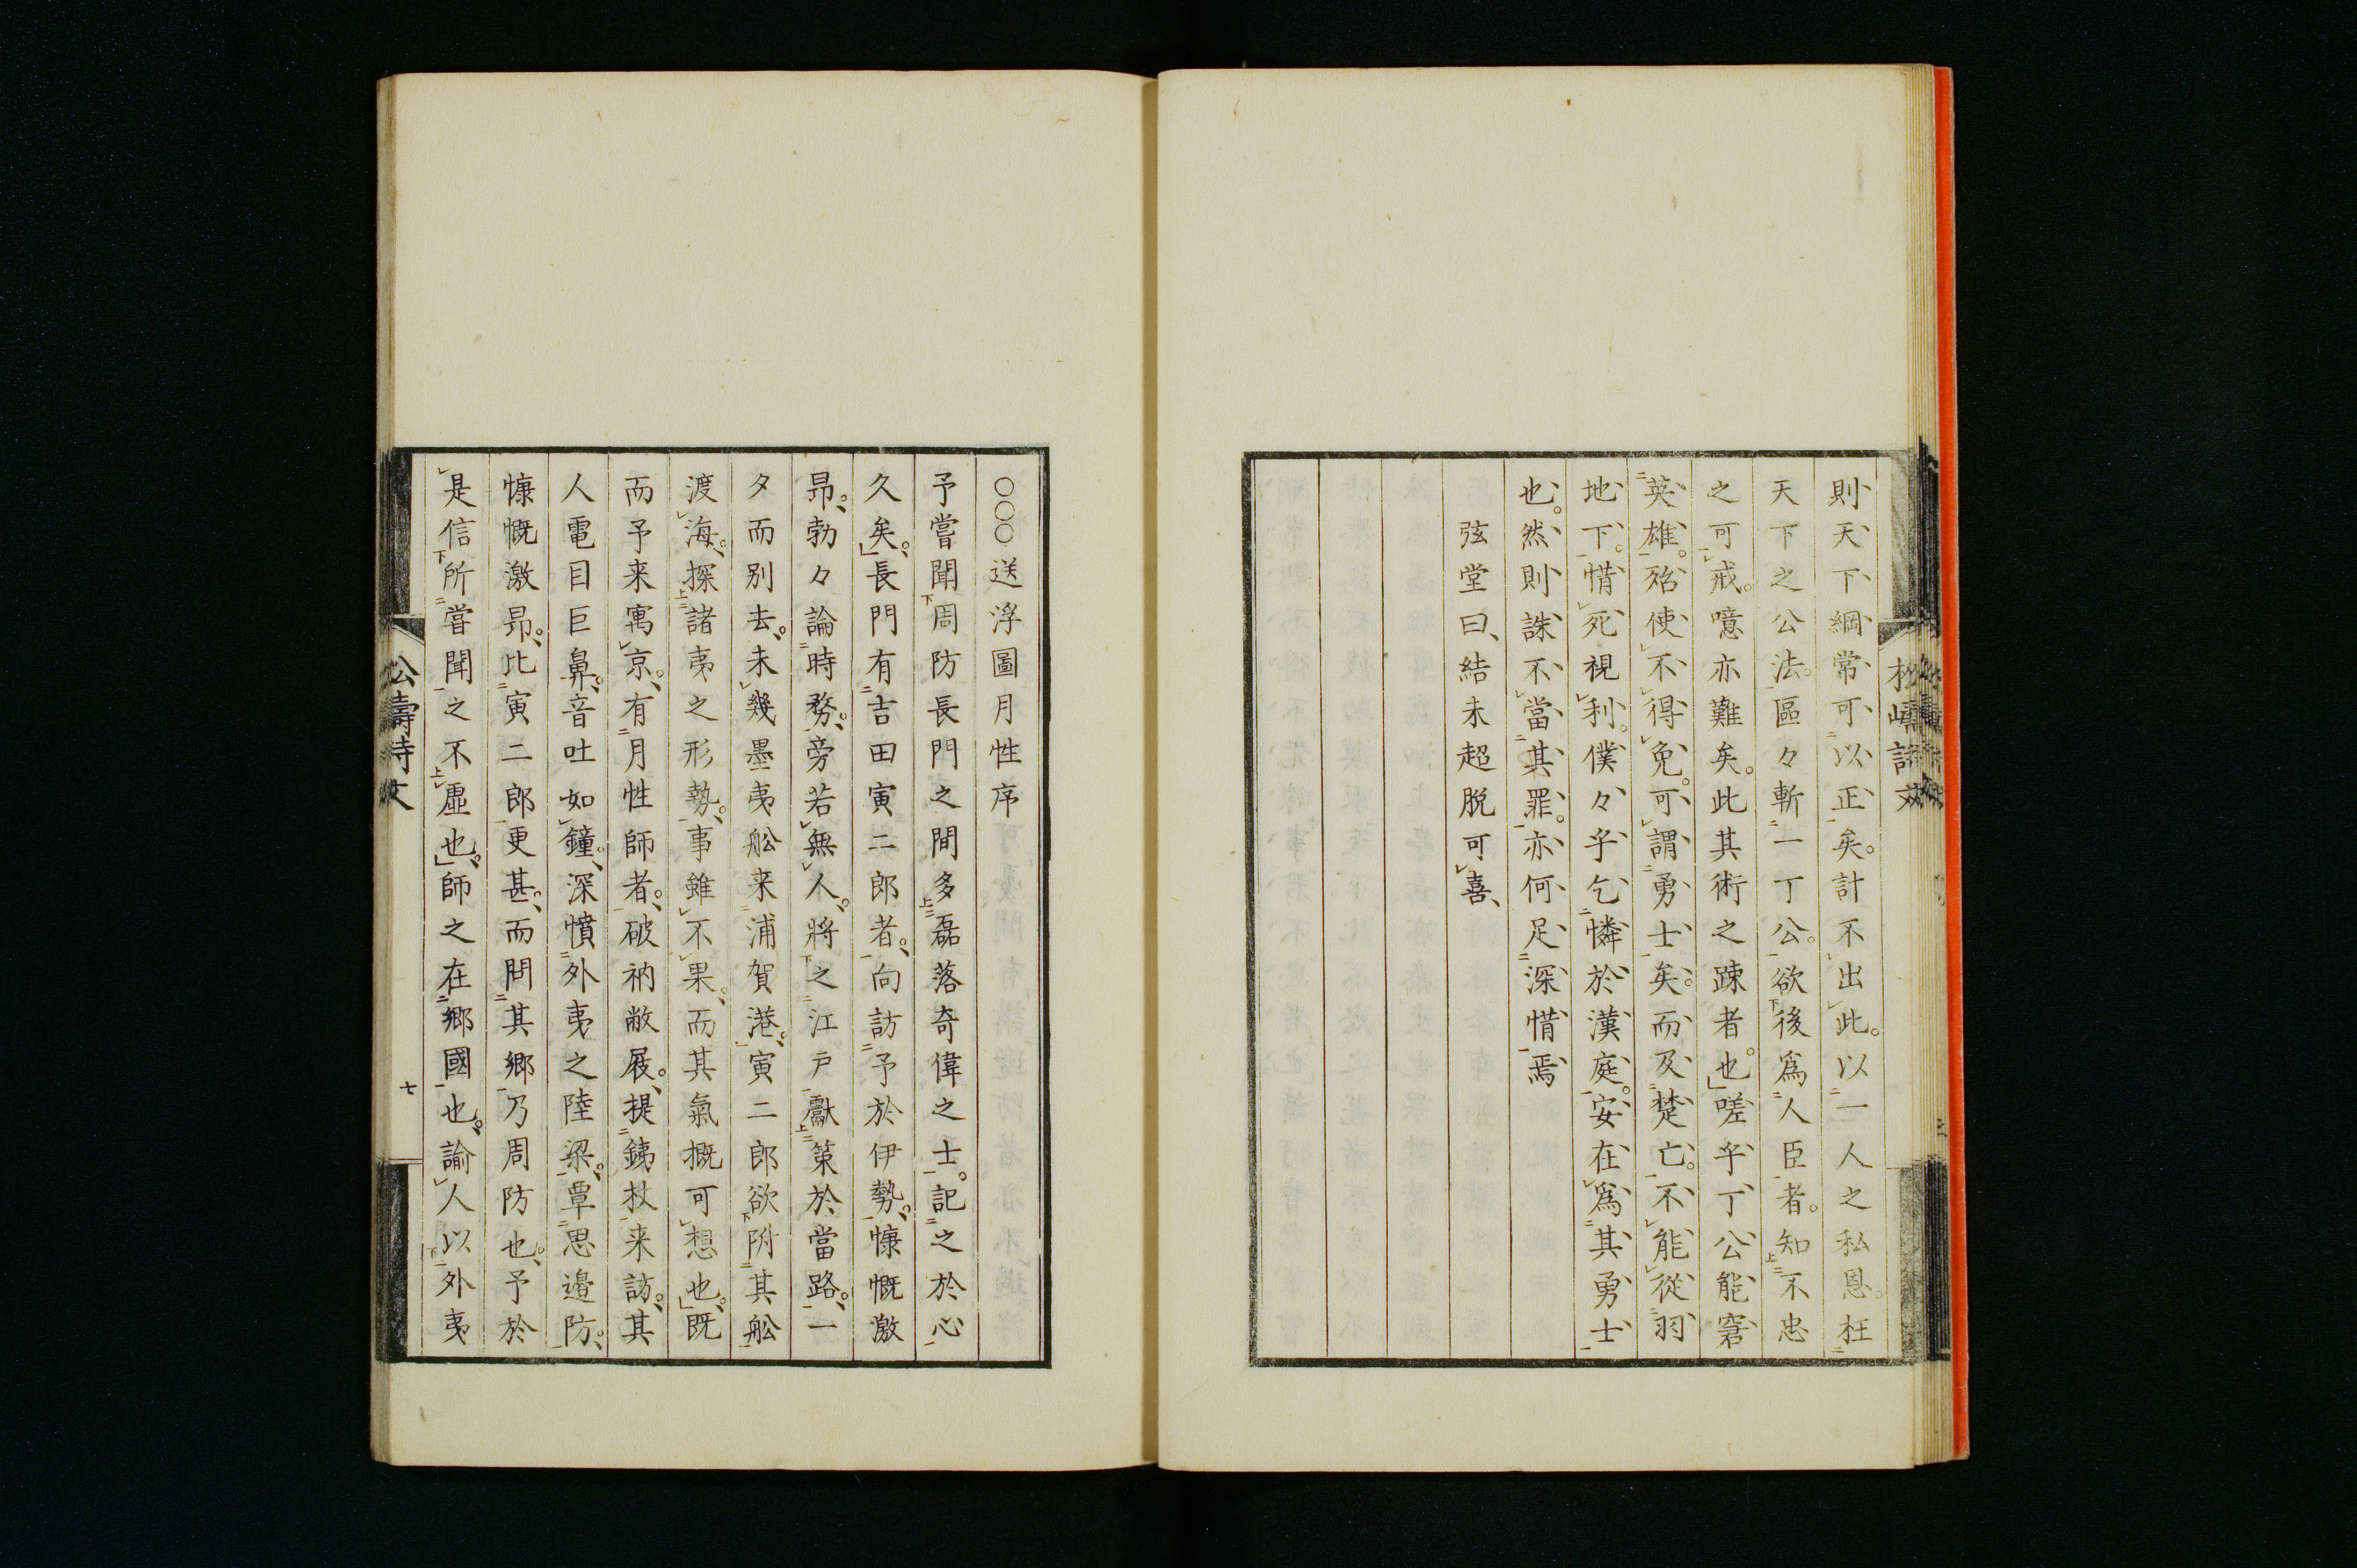 則天下綱常可以正矣。計不出此。以一人之私恩。枉
天下之公法。區々斬一丁公。欲後爲人臣者。知不忠
之可戒。噫亦難矣。此其術之疎者也。嗟乎丁公能窘
英雄。殆使不得免。可謂勇士矣。而及楚亡。不能從羽
地下。惜死視利。僕々乎乞憐於漢庭。安在爲其勇士
也。然則誅不當其罪。亦何足深惜焉
弦堂曰、結未超脱可喜、
〇〇〇送浮圖月性序
予嘗聞周防長門之間多磊落奇偉之士。記之於心
久矣。長門有吉田寅二郎者。向訪予於伊勢。慷慨激
昂。勃々論時務。旁若無人。將之江戸獻策於當路。一
夕而別去。未幾墨夷舩来浦賀港。寅二郎欲附其舩
渡海。探諸夷之形勢。事雖不果。而其氣概可想也。既
而予来寓京。有月性師者。破衲敝屐。提銕杖来訪。其
人電目巨鼻。音吐如鐘。深憤外夷之陸梁。覃思邉防。
慷慨激昂。比寅二郎更甚。而問其郷乃周防也。予於
是信所嘗聞之不虚也。師之在郷國也。諭人以外夷
七